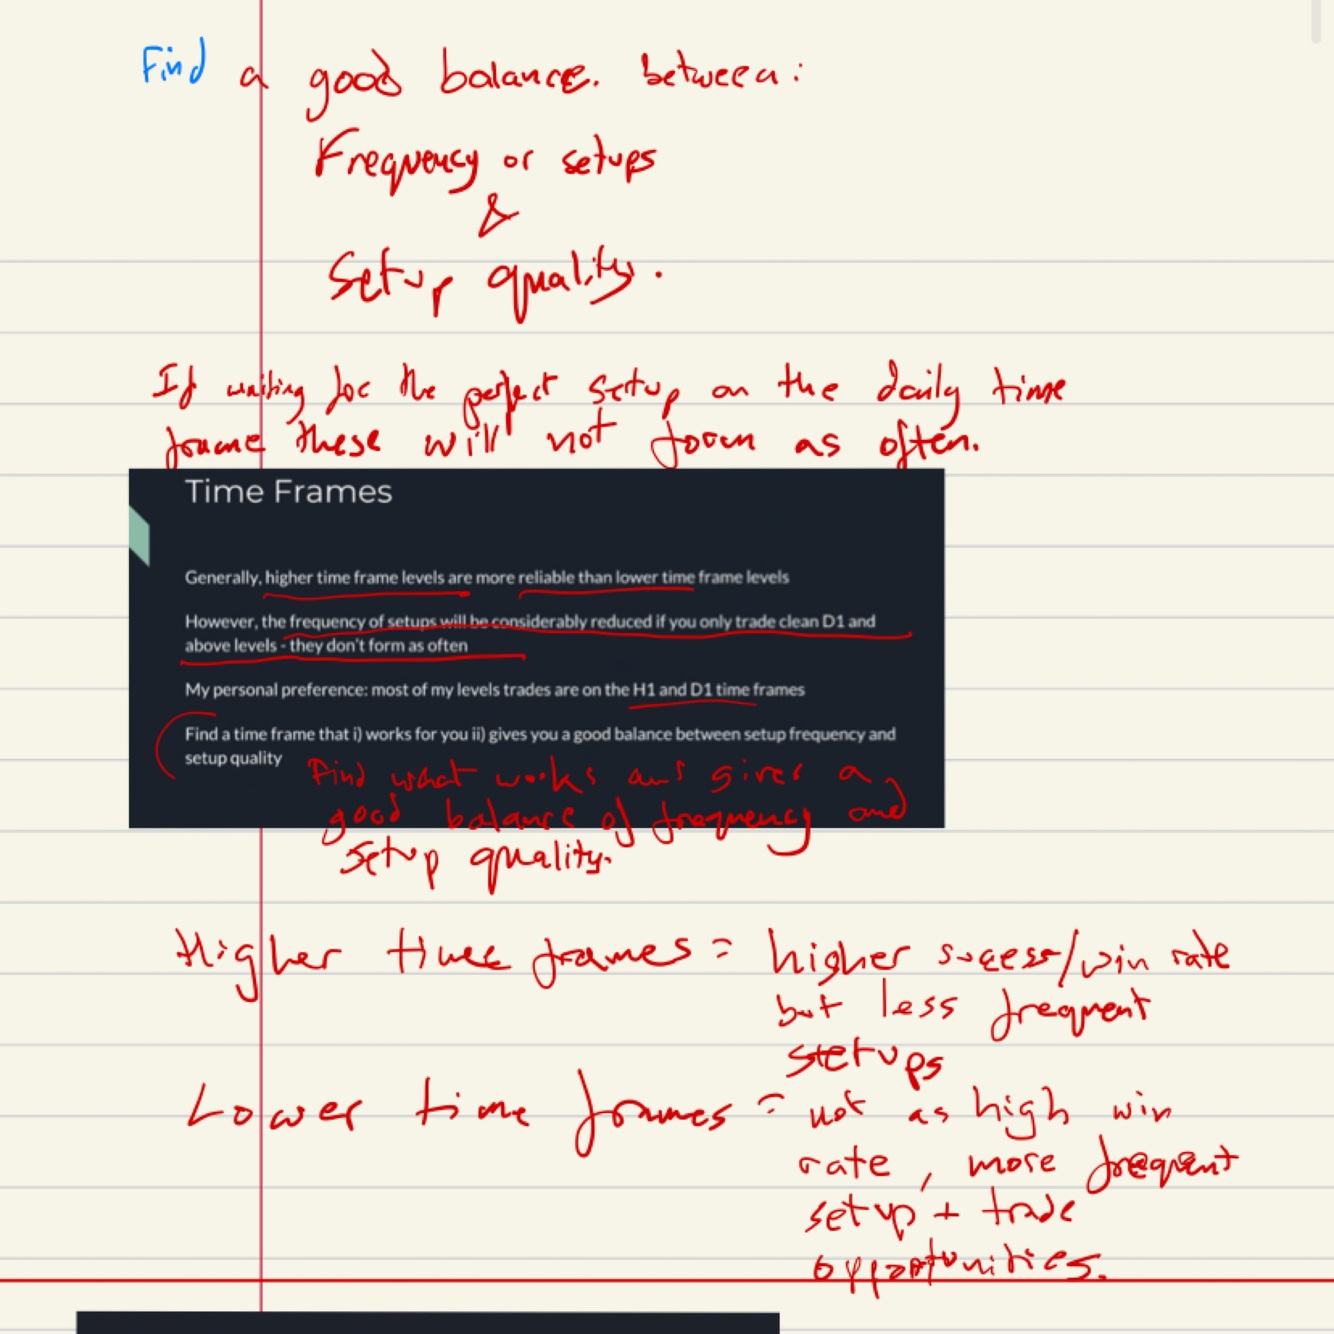 Find a good balance. between:
Frequency or setups
&
Setup quality.
If waiting for the perfect setup on the daily time
frame these will not form as often.
Time Frames
Generally, higher time frame levels are more reliable than lower time frame levels
However, the frequency of setups will be considerably reduced if you only trade clean D1 and
above levels - they don't form as often
My personal preference: most of my levels trades are on the H1 and D1 time frames
Find a time frame that i) works for you ii) gives you a good balance between setup frequency and
setup quality
Find what works and gives a
good balance of frequency and
setup quality.
Higher time frames = higher sucess/win rate
but less frequent
setups
Lower time frames = not as high win
rate, more frequent
setup + trade
opportunities.